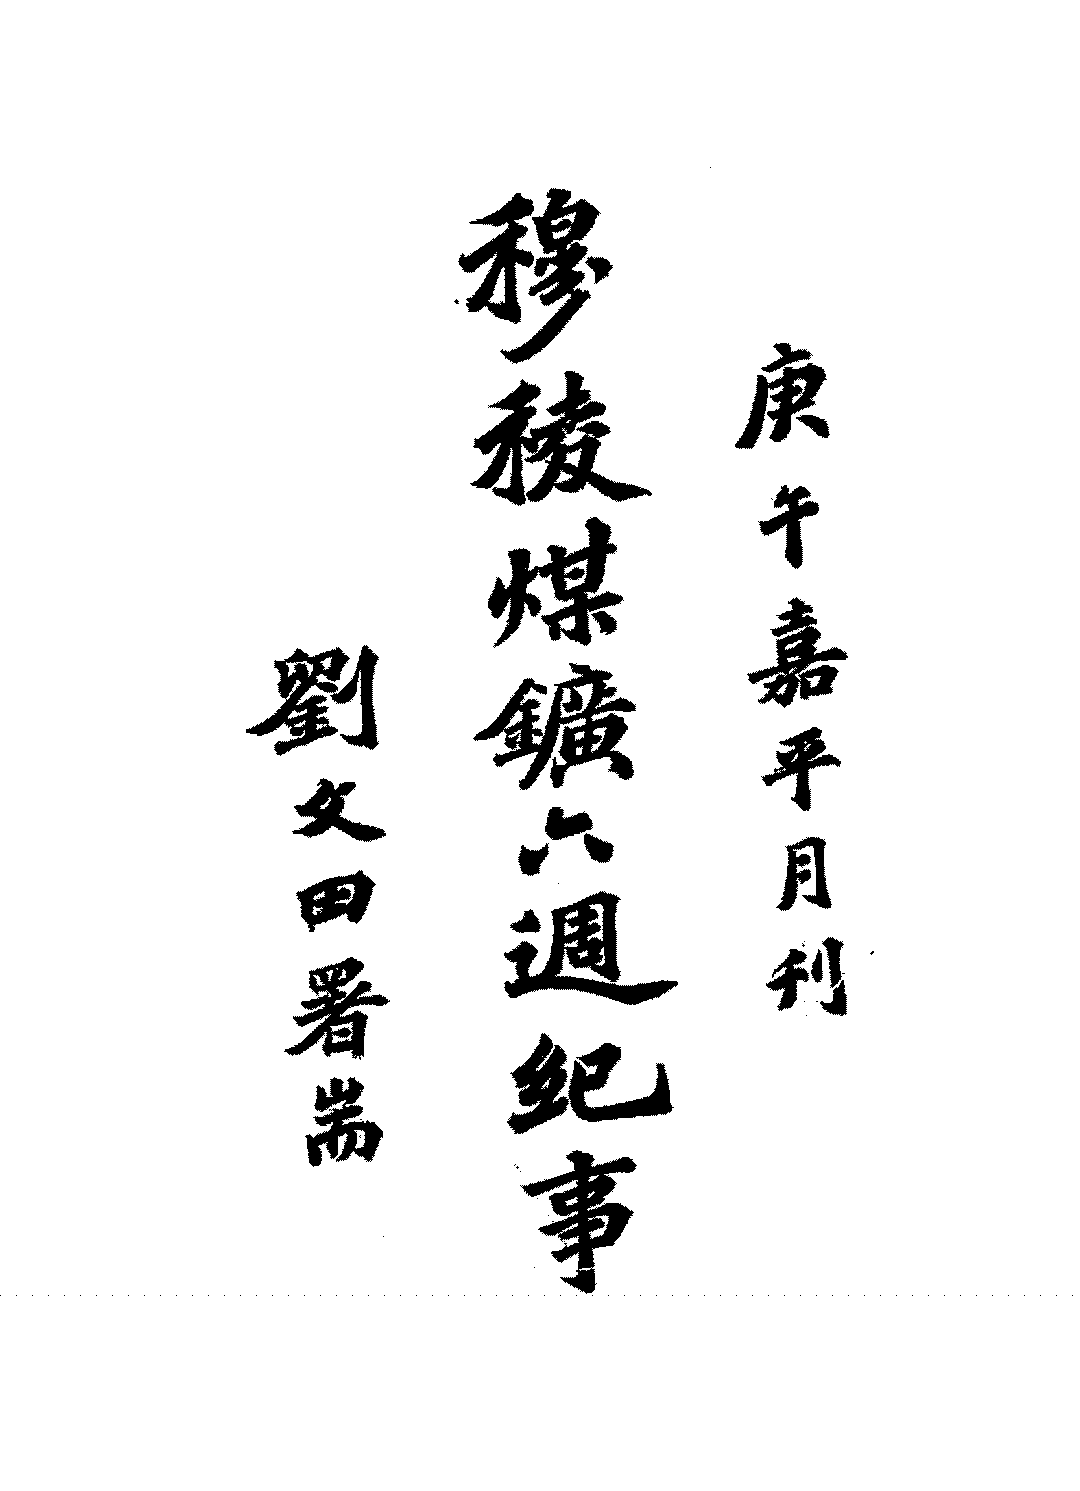 庚午嘉平月刋
穆稜煤鑛六週紀事
劉文田署耑